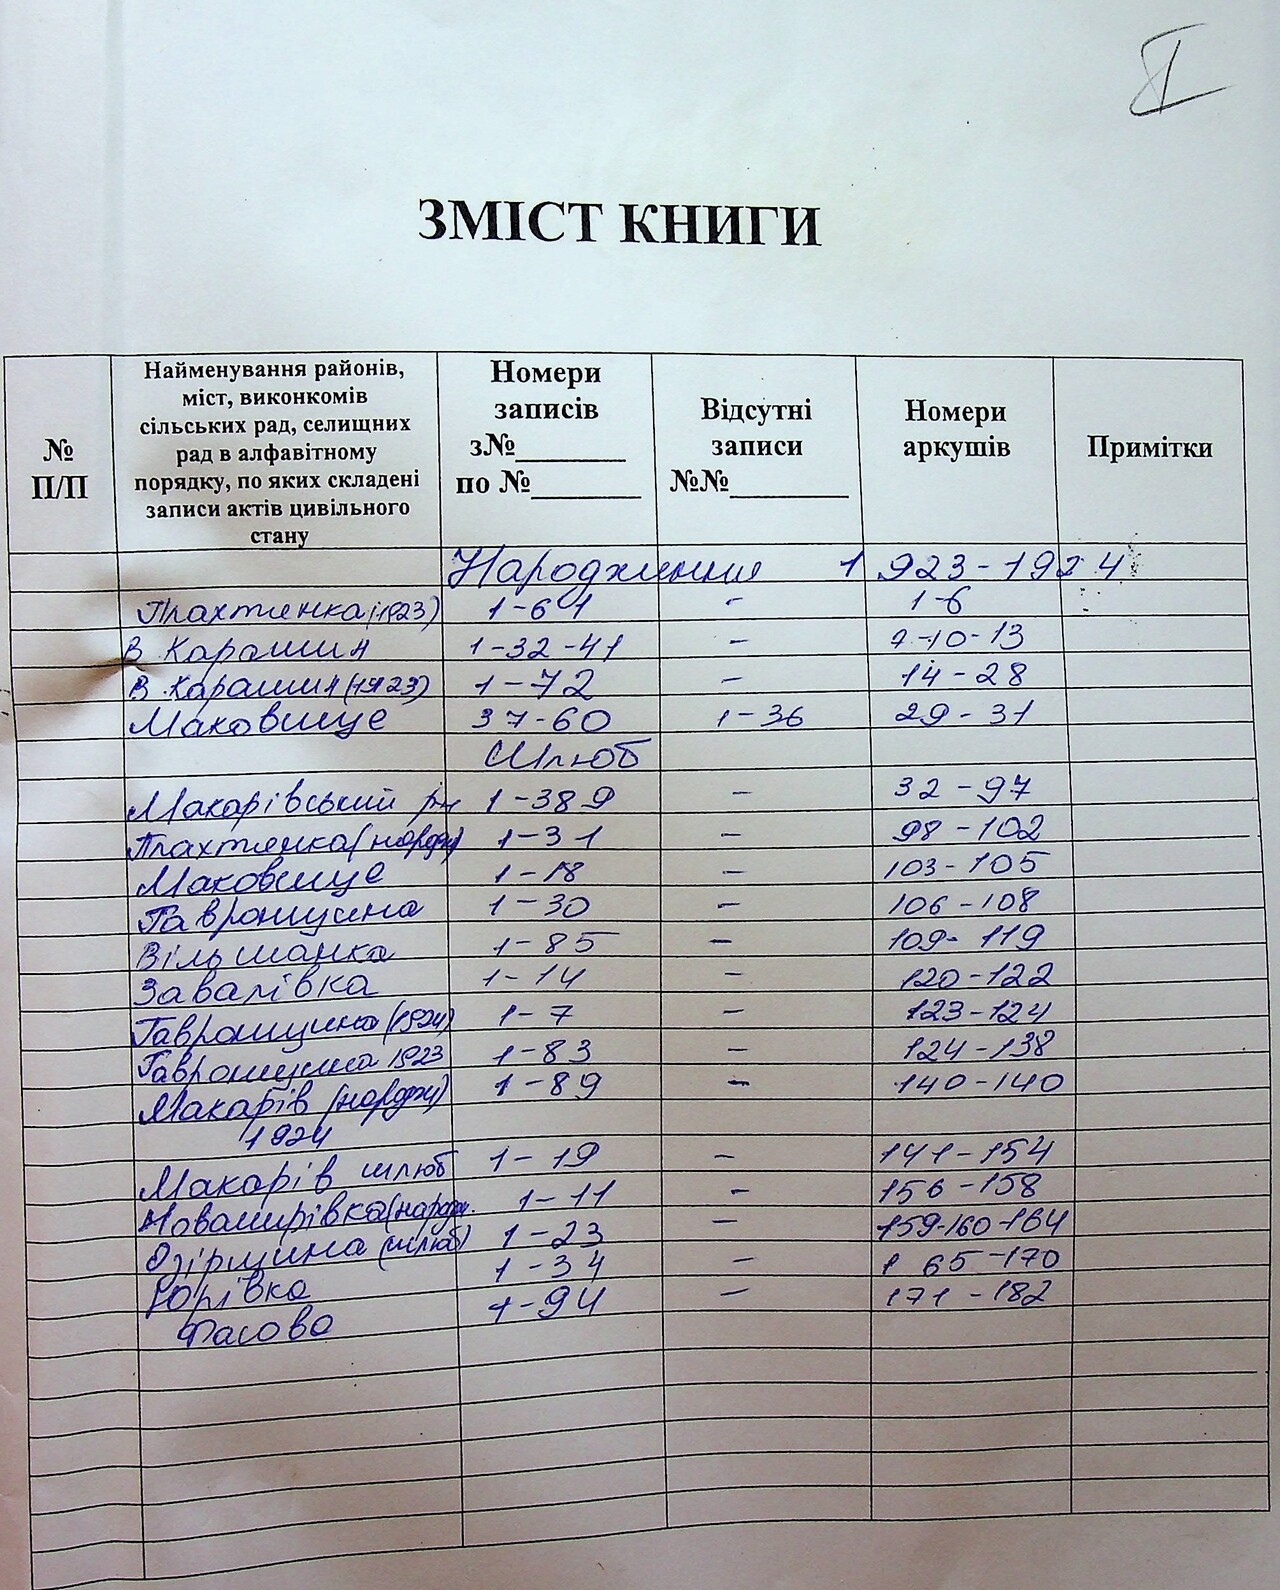 I
ЗМІСТ КНИГИ
№ П/П
Найменування районів, міст, виконкомів сільських рад, селищних рад в алфавітному порядку, по яких складені записи актів цивільного стану
Номери записів з№________ по №________
Відсутні записи №№________
Номери аркушів
Примітки
Народження 1923-1924
Плахтянка (1923) 1-61 - 1-6
В Карашин 1-32-41 - 7-10-13
В. Карашин (1923) 1-72 - 14-28
Маковище 37-60 1-36 29-31
Шлюб
Макарівський рн 1-389 - 32-97
Плахтянка (народж) 1-31 - 98-102
Маковище 1-18 - 103-105
Гавронщина 1-30 - 106-108
Вільшанка 1-85 - 109-119
Завалівка 1-14 - 120-122
Гавронщина (1924) 1-7 - 123-124
Гавронщина 1923 1-83 - 124-138
Макарів (народж) 1-89 - 140-140
1924
Макарів шлюб 1-19 - 141-154
Новомирівка (народж. 1-11 - 156-158
Озірщина (шлюб) 1-23 - 159-160-164
Юрівка 1-34 - 165-170
Фасова 1-94 - 171-182